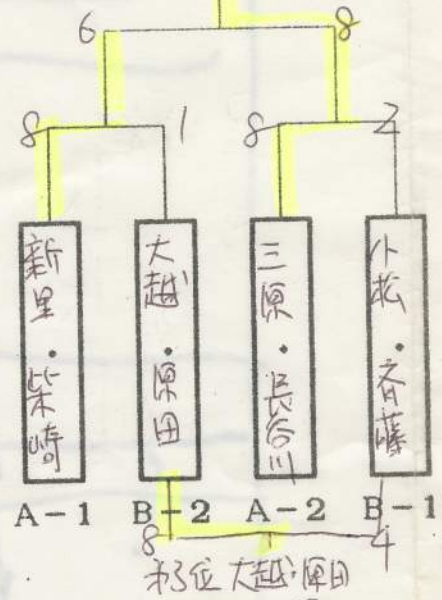 6 8
8 1 8 2
新里・柴崎
大越・原田
三原・長谷川
小松・斉藤
A-1 B-2 A-2 B-1
8 4
第3位 大越・原田